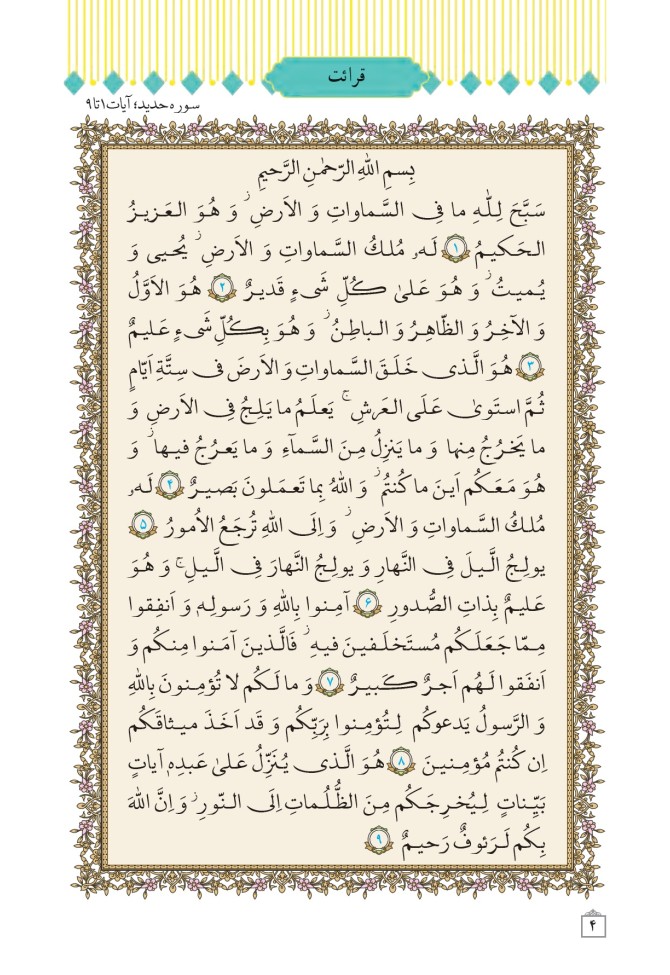 قرائت
سوره حدید؛ آیات ۱ تا ۹
بِسمِ اللهِ الرَّحمٰنِ الرَّحیمِ
سَبَّحَ لِلّٰهِ ما فِی السَّماواتِ وَ الاَرضِ ۖ وَ هُوَ العَزیزُ
الحَکیمُ ۱ لَهُ مُلکُ السَّماواتِ وَ الاَرضِ ۖ یُحیی وَ
یُمیتُ ۖ وَ هُوَ عَلیٰ کُلِّ شَیءٍ قَدیرٌ ۲ هُوَ الاَوَّلُ
وَ الآخِرُ وَ الظّاهِرُ وَ الباطِنُ ۖ وَ هُوَ بِکُلِّ شَیءٍ عَلیمٌ
۳ هُوَ الَّذی خَلَقَ السَّماواتِ وَ الاَرضَ فی سِتَّةِ اَیّامٍ
ثُمَّ استَویٰ عَلَی العَرشِ ۚ یَعلَمُ ما یَلِجُ فِی الاَرضِ وَ
ما یَخرُجُ مِنها وَ ما یَنزِلُ مِنَ السَّمآءِ وَ ما یَعرُجُ فیها ۖ وَ
هُوَ مَعَکُم اَینَ ما کُنتُم ۖ وَ اللهُ بِما تَعمَلونَ بَصیرٌ ۴ لَهُ
مُلکُ السَّماواتِ وَ الاَرضِ ۖ وَ اِلَی اللهِ تُرجَعُ الاُمورُ ۵
یولِجُ الَّیلَ فِی النَّهارِ وَ یولِجُ النَّهارَ فِی الَّیلِ ۚ وَ هُوَ
عَلیمٌ بِذاتِ الصُّدورِ ۶ آمِنوا بِاللهِ وَ رَسولِهِ وَ اَنفِقوا
مِمّا جَعَلَکُم مُستَخلَفینَ فیهِ ۖ فَالَّذینَ آمَنوا مِنکُم وَ
اَنفَقوا لَهُم اَجرٌ کَبیرٌ ۷ وَ ما لَکُم لا تُؤمِنونَ بِاللهِ
وَ الرَّسولُ یَدعوکُم لِتُؤمِنوا بِرَبِّکُم وَ قَد اَخَذَ میثاقَکُم
اِن کُنتُم مُؤمِنینَ ۸ هُوَ الَّذی یُنَزِّلُ عَلیٰ عَبدِهِ آیاتٍ
بَیِّناتٍ لِیُخرِجَکُم مِنَ الظُّلُماتِ اِلَی النّورِ ۚ وَ اِنَّ اللهَ
بِکُم لَرَئوفٌ رَحیمٌ ۹
۴